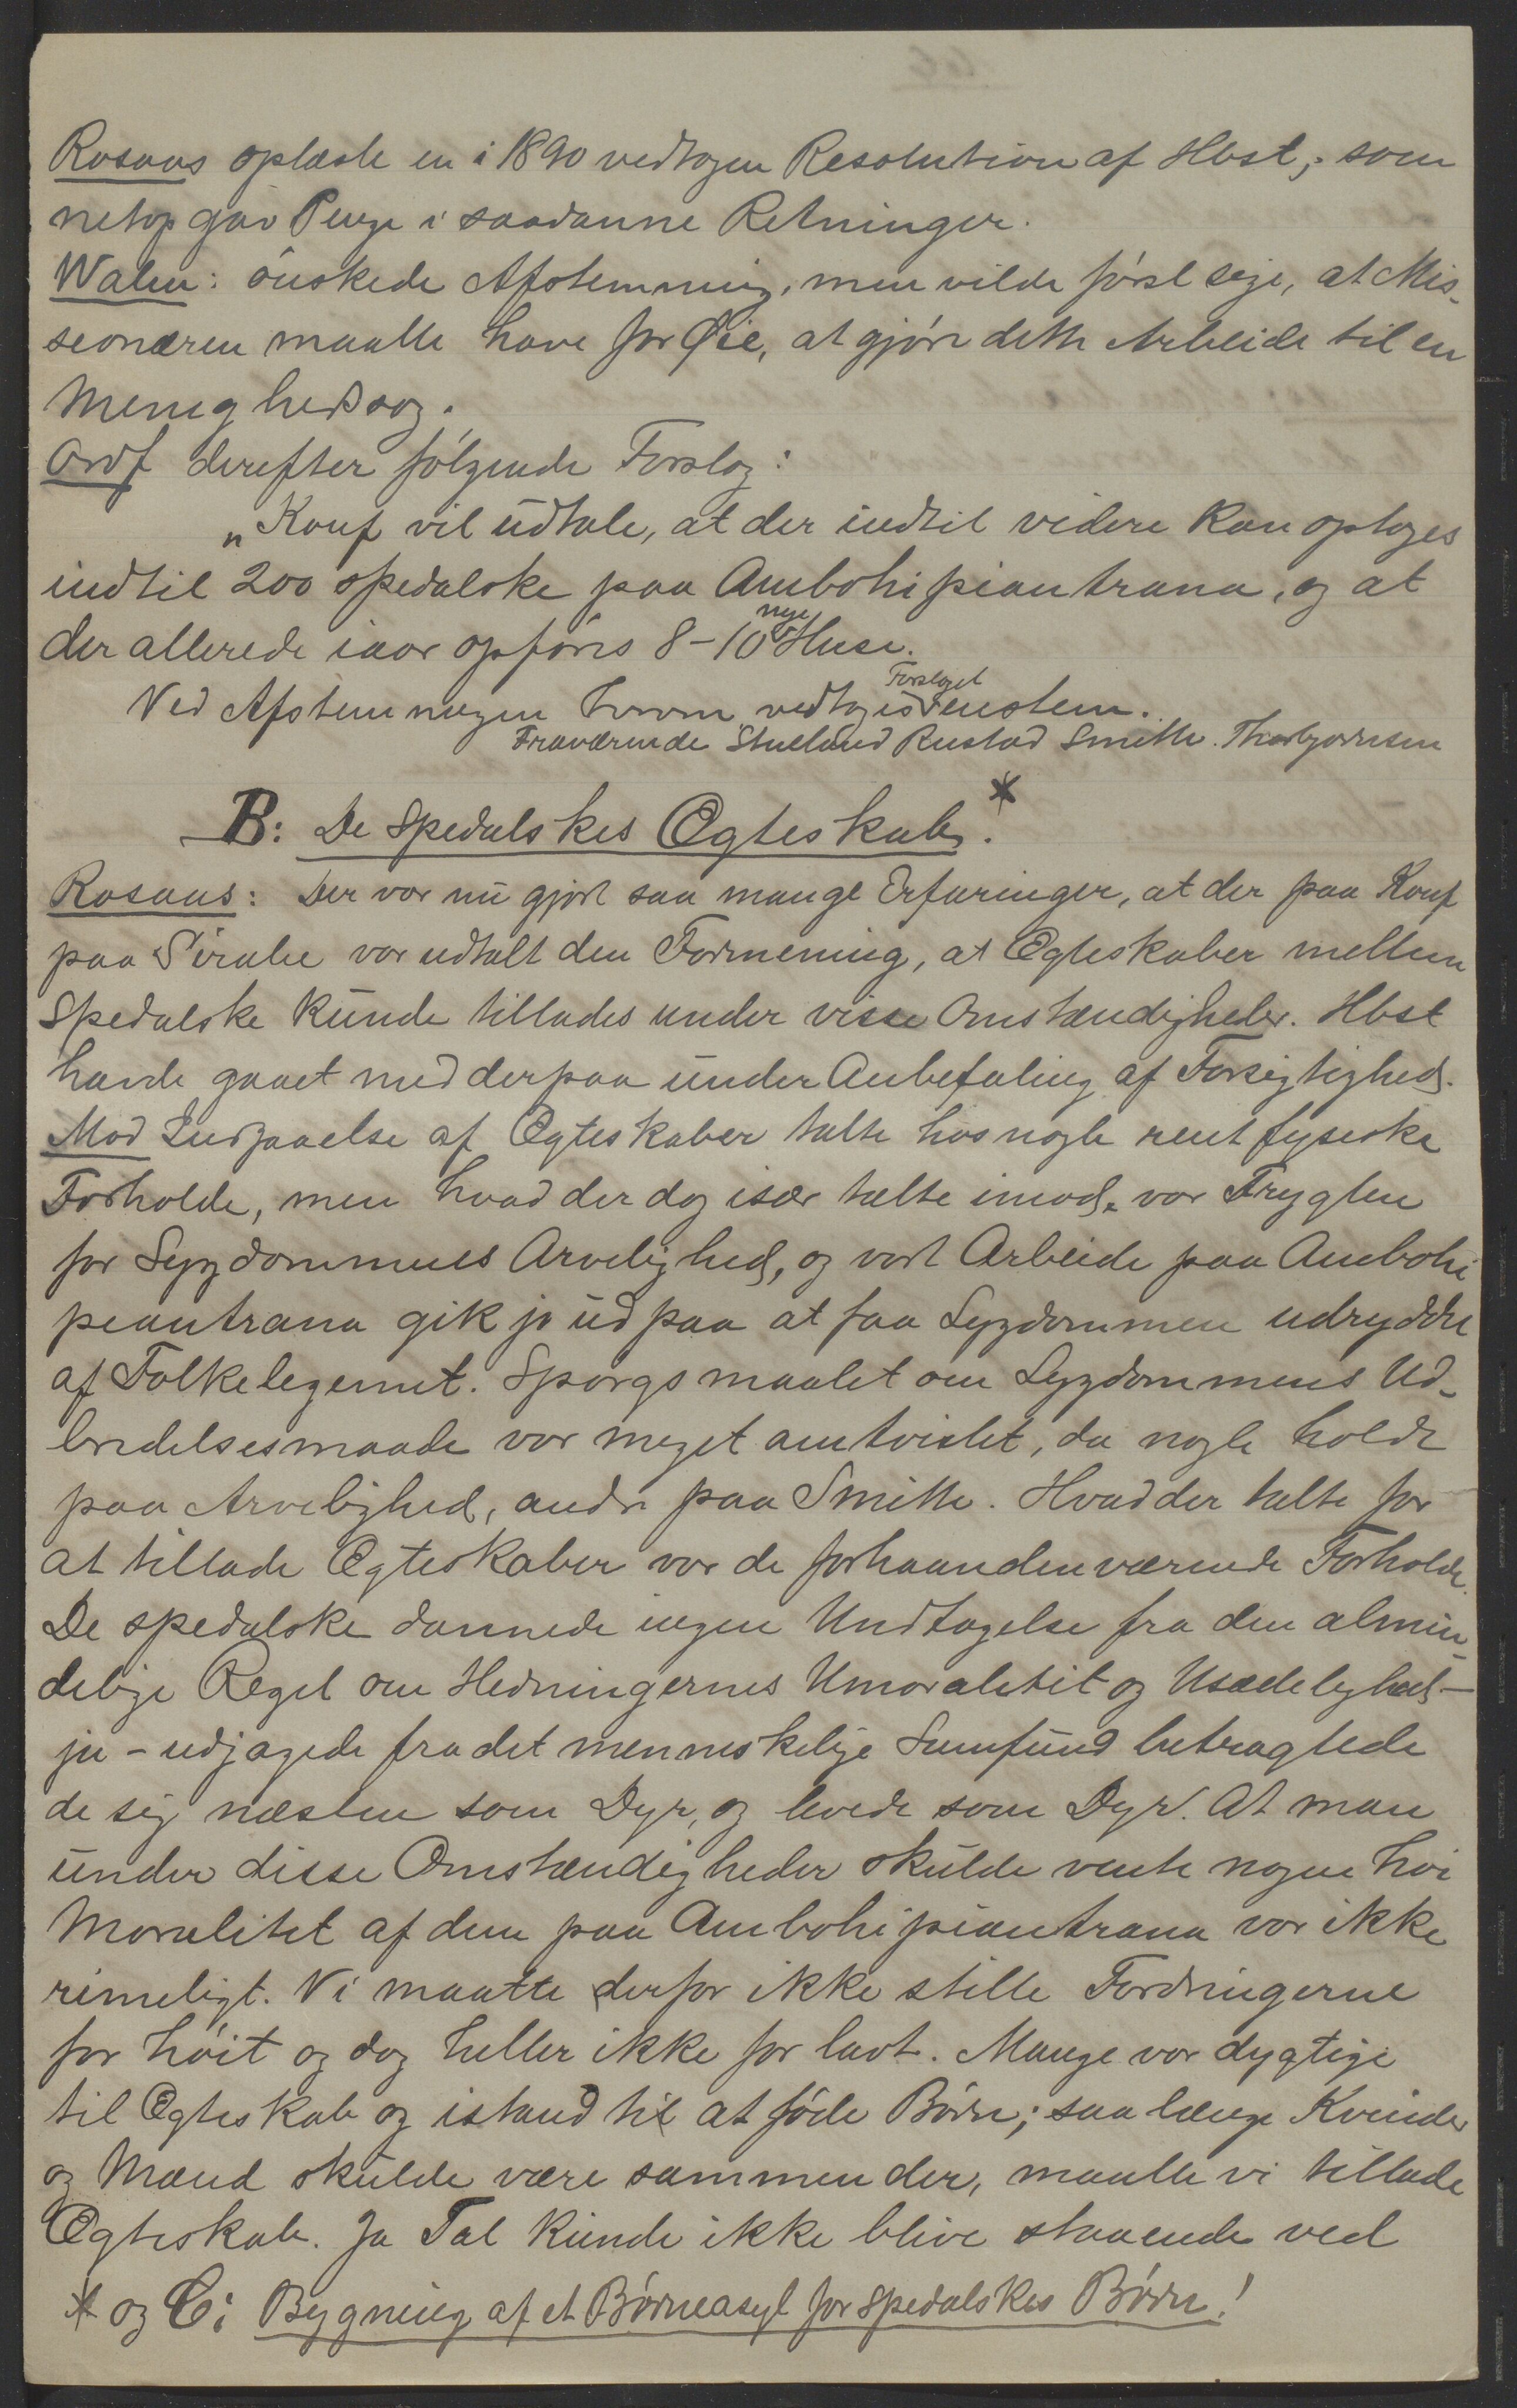 Rosaas oplæste en i 1890 vedtagen Resolution af Hbst, som
netop gav Penge i saadanne Retninger.
Walen: ønskede Afstemning, men vilde først sige, at Mis-
sionæren maatte have for Øie, at gjøre dette Arbeide til en
Menighedssag.
Ordf derefter følgende Forslag:
"Konf vil udtale, at der indtil videre kan optages
indtil 200 spedalske paa Ambohipiantrana, og at
der allerede iaar opføres 8-10 nye Huse.
Ved Afstemningen herom vedtoges Forslaget enstem.
Fraværende Stueland Rustad Smith. Thorbjørnsen
B: De Spedalskes Ægteskab. *
Rosaas: Der var nu gjort saa mange Erfaringer, at der paa Konf
paa Sirabe var udtalt den Formening, at Ægteskaber mellem
Spedalske kunde tillades under visse Omstændigheder. Hbst
havde gaaet med derpaa under Anbefaling af Forsigtighed.
Mod Indgaaelse af Ægteskaber talte hos nogle rent fysiske
Forholde, men hvad der dog især talte imod, var Frygten
for Sygdommens Arvelighed, og vort Arbeide paa Ambohi
piantrana gik jo ud paa at faa Sygdommen udryddet
af Folkelegemet. Spørgsmaalet om Sygdommens Ud-
bredelsesmaade var meget omtvistet, da nogle holdt
paa Arvelighed, andre paa Smitte. Hvad der talte for
at tillade Ægteskaber var de forhaandenværende Forholde.
De spedalske dannede ingen Undtagelse fra den almin-
delige Regel om Hedningernes Umoralitet og Usædelighed -
ja - udjagede fra det menneskelige Samfund betragtede
de sig næsten som Dyr, og levede som Dyr. At man
under disse Omstændigheder skulde vente nogen høi
Moralitet af dem paa Ambohipiantrana var ikke
rimeligt. Vi maatte derfor ikke stille Fordringerne
for høit og dog heller ikke for lavt. Mange var dygtige
til Ægteskab og istand til at føde Børn; saa længe Kvinder
og Mænd skulde være sammen der, maatte vi tillade
Ægteskab. Ja Tal kunde ikke blive staaende ved
* og C: Bygning af et Børneasyl for Spedalskes Børn!